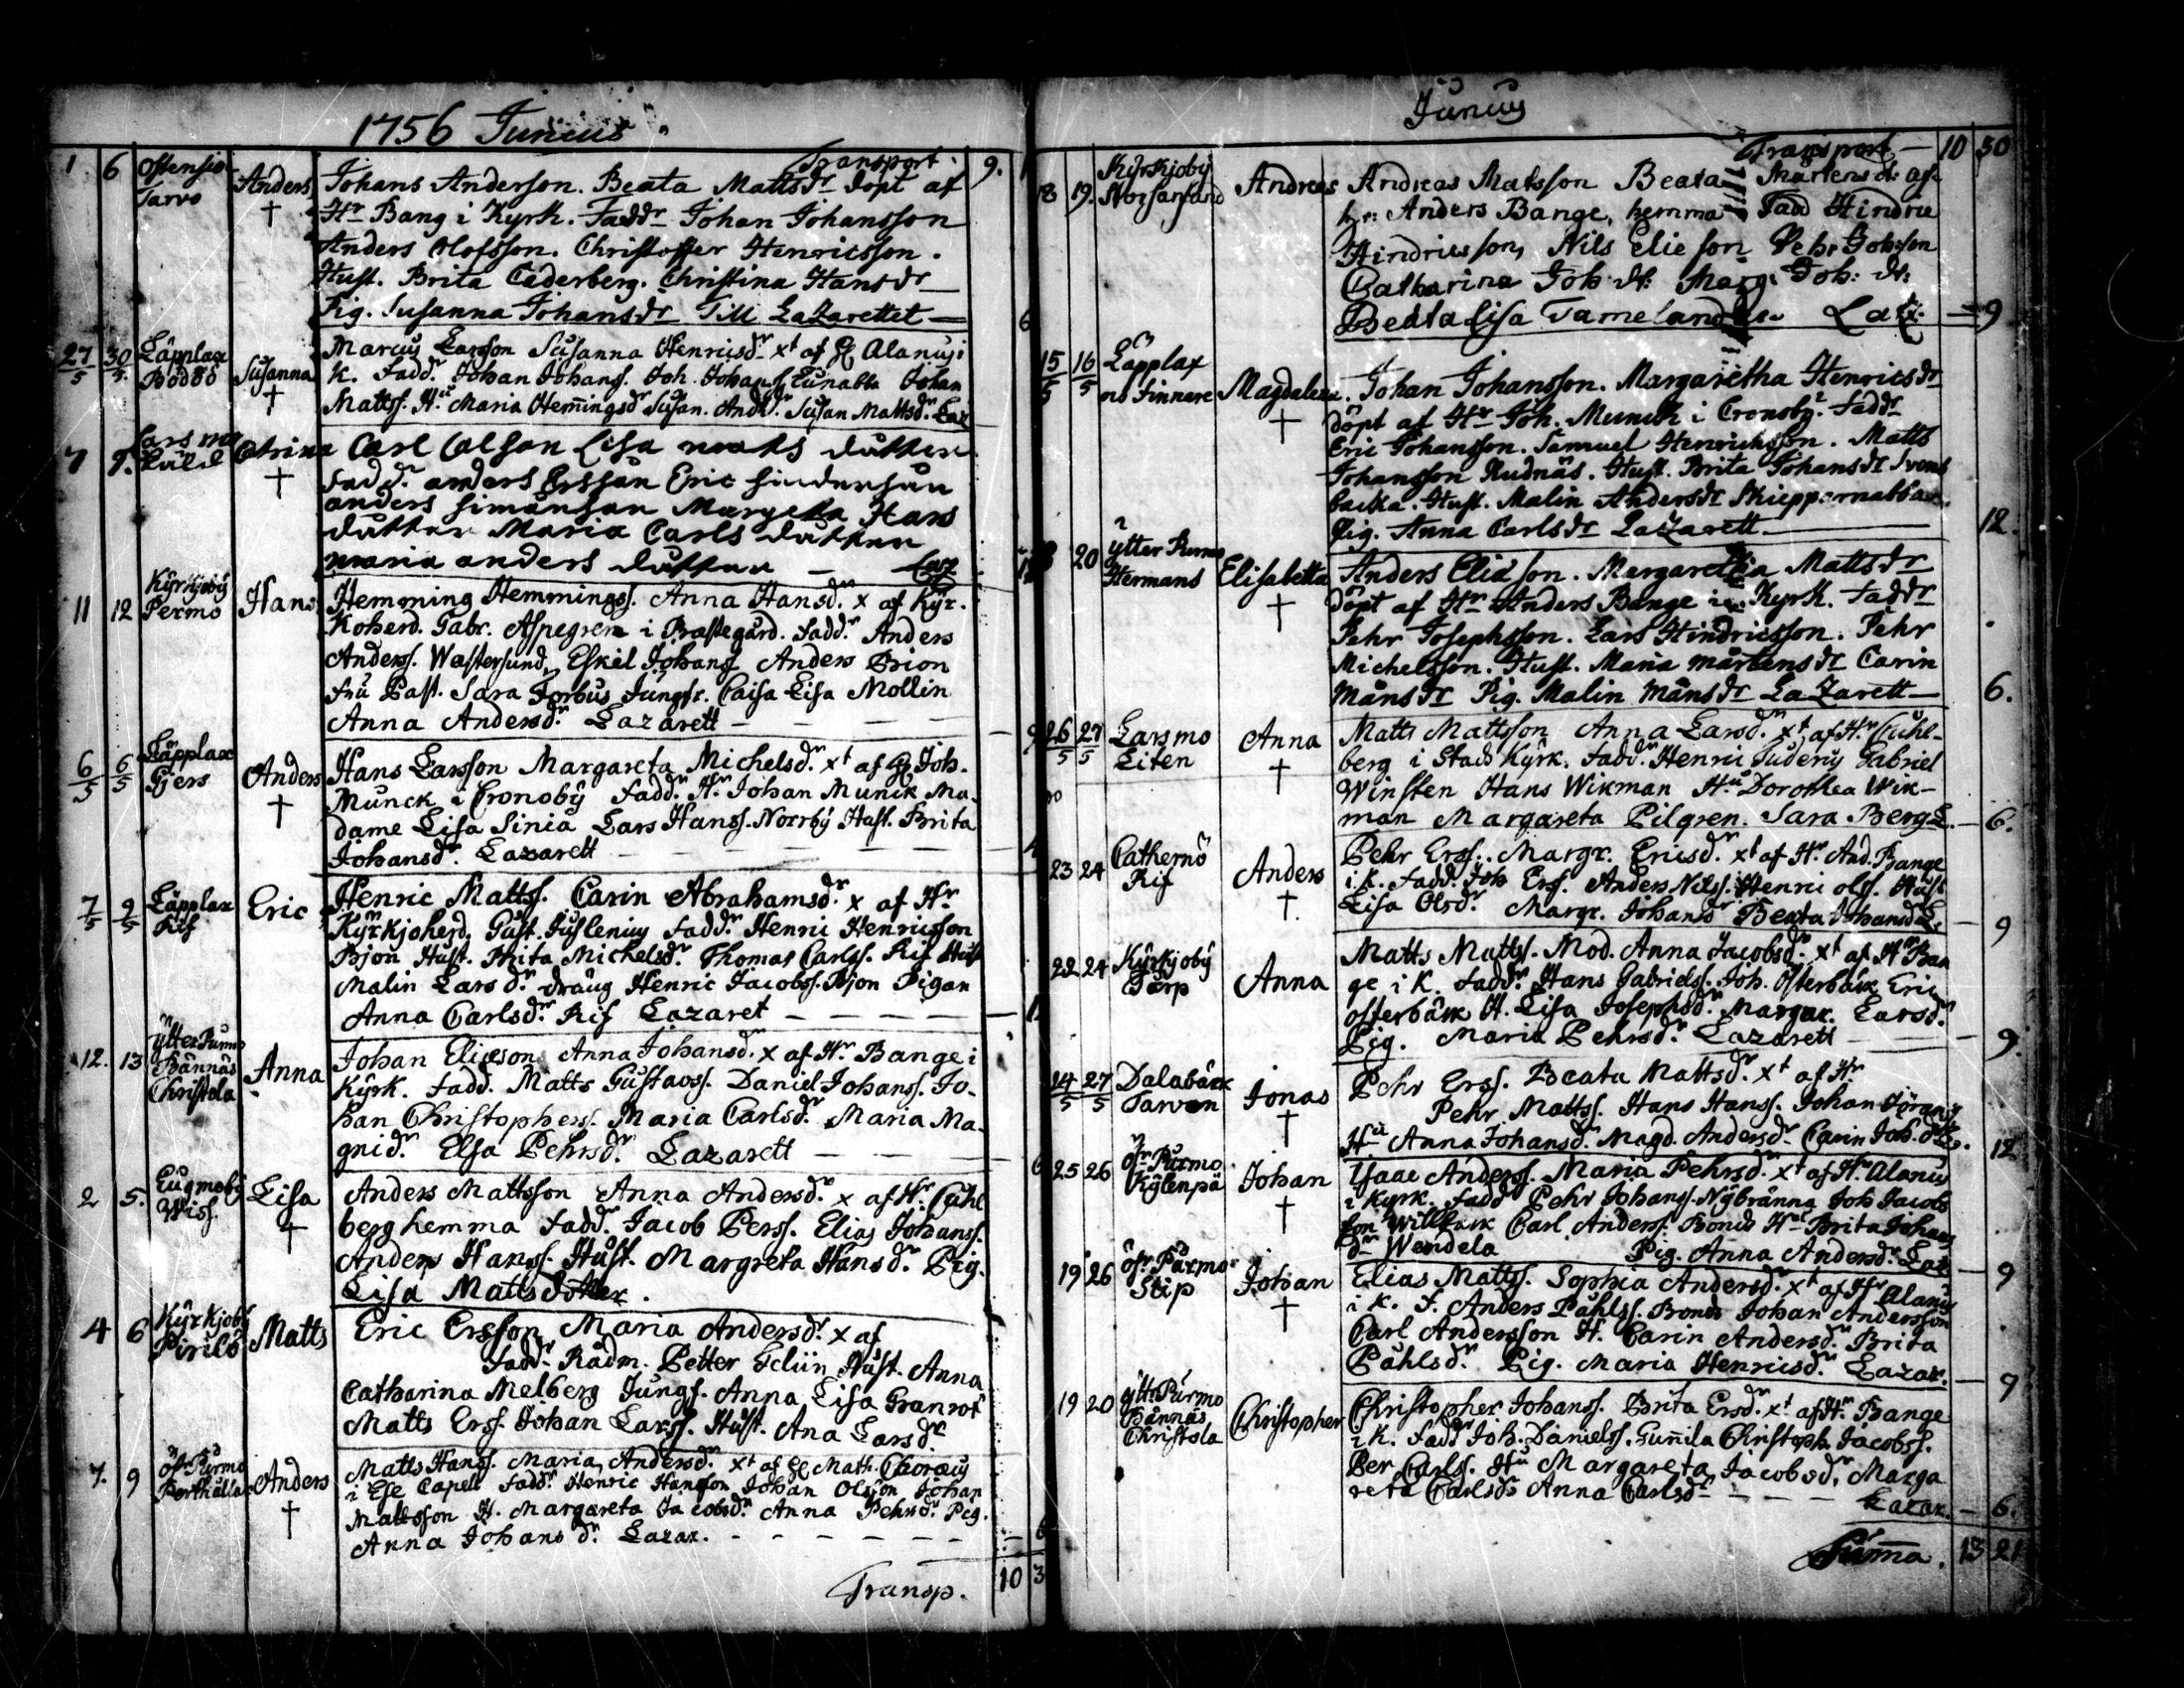 1756 Junius
Transport. 9.
1 6 Anders † Johans Anderson. Beata Mattsdr döpt af
Tarvo Hr Bang i Kyrk. Faddr Johan Johansson
Anders Olofsson. Christoffer Henricsson.
Hust. Brita Cederberg. Christina Hansdr
Pig. Susanna Johansdr Till Lazarettet 6
27/5 30/5 Läpplax Susanna † Marcus Larsson Susanna Henricsdr xt af Alanus i
Bodöö K. Faddr Johan Johanss. Joh. Johanss. Johan
Mattss. Hu Maria Hemingsdr Susan. Andrdr Susan Mattsdr Laz
7 9. Larsmo Catrina † Carl Calson Lisa mats dutter
Fadd. anders Ersson Eric
anders simonson Margeta Hans
dutter Maria Carls dutter
maria anders dutter – Laz
11 12 Kyrkjoby Hans Hemming Hemmingss. Anna Hansdr x af Kyr.
Permo Koherd. Gabr. Aspegren i Præstegård. Faddr Anders
Anderss. Westersund, Eskil Johanss Anders Bion
Fru Past. Sara Forbus Jungfr. Caisa Lisa Mollin
Anna Andersdr Lazarett – – – –
6/5 6/5 Läpplax Anders † Hans Larsson Margareta Michelsdr xt af Joh.
Gers Munck i Cronoby Faddr Hr Johan Munck Ma-
dame Lisa Sinia Lars Hanss. Norrby Hust. Brita
Johansdr. Lazarett – – – –
7/5 9/5 Läpplax Eric Henric Mattss. Carin Abrahamsdr x af Hr
Rif Kyrkjoherd. Gust. Juslenius Faddr Henric Henricsson
Bjon Hust. Brita Michelsdr Thomas Carlss. Rif Hust
Malin Larsdr dräng Henric Jacobss. Bjon Pigan
Anna Carlsdr Rif Lazaret – – – –
12. 13 Ytter Purmo Anna Johan Eliæson Anna Johansdr x af Hr Bange i
Bännäs Kyrk. Fadd. Matts Gustavss. Daniel Johanss. Jo-
Christola han Christopherss. Maria Carlsdr Maria Ma-
gnidr. Elsa Pehrsdr Lazarett – – – 6
2 5. Lugmoby Lisa † Anders Mattsson Anna Andersdr x af Hr Cahl
Wiss. berg hemma Faddr Jacob Perss. Elias Johanss.
Anders Hanss. Hust. Margreta Hansdr Pig.
Lisa Matts dotter.
4 6 Kyrkjoby Matts Eric Ersson Maria Andersdr x af
Pirilö Faddr Rådm. Petter Hust. Anna
Catharina Melberg Jungf. Anna Lisa Granrot
Matts Erss. Johan Larss. Hust. Ana Larsdr
7. 9 Öfr Purmo Anders † Matts Hanss. Maria Andersdr xt af Math. Choræus
i Ese Capell Faddr Henric Hansson Johan Olsson Johan
Mattsson H. Margareta Jacobsdr Anna Pehrsdr Pig.
Anna Johansdr Lazar. – – – – – – 6
Transp. 10 3
Junius
Transport – 10 30
18 19. Kyrkjoby Andreas Andreas Matsson Beata Mårtensd: af
hr: Anders Bange, hemma Fadd Hindric
Hindricsson, Nils Elieson Pehr Johson
Catharina Joh: dt: Marg: Joh: dt:
Beata Lisa Tamelander Laz: – 9
15/5 16/5 Läpplax Magdalena † Johan Johansson. Margaretha Henricsdr
Finnare döpt af Hr Joh. Munck i Cronoby. Faddr
Eric Johansson. Samuel Henrichsson. Matts
Johansson Rudnäs. Hust. Brita Johansdr Svens
backa. Hust. Malin Andersdr Skieppernabba
Pig. Anna Carlsdr Lazarett 12.
20 Ytter Purmo Elisabetta † Anders Eliæson. Margaretha Mattsdr
Hermans döpt af Hr Anders Bange i Kyrk. Faddr
Pehr Josephsson. Lars Hindricsson. Pehr
Michelsson. Hust. Maria Mårtensdr Carin
Månsdr Pig. Malin Månsdr Lazarett – 6.
26/5 27/5 Larsmo Anna † Matts Mattsson Anna Larsdr xt af Hr Cahl-
Liten berg i Stads Kyrk. Faddr Henric Juderus Gabriel
Winsten Hans Wikman Hu Dorothea Wik-
man Margareta Pilgren. Sara Berg L. – 6.
23 24 Cathernö Anders † Pehr Erss. Margr. Ericsdr xt af Hr And. Bange
Rif i K. Fadd. Joh Erss. Anders Nilss. Henric olss. Hust
Lisa Olsdr. Margr. Johansdr Beata Johansdr L. – 9
22 24 Kyrkjoby Anna Matts Mattss. Mod. Anna Jacobsdr xt af Hr Ban
ge i K. Faddr Hans Gabrielss. Joh. Österbäck Eric
österbäck H. Lisa Josephsdr Margar. Larsdr
Pig. Maria Pehrsdr Lazarett – 9.
14/5 27/5 Dalabäck Jonas † Pehr Erss. Beata Mattsdr xt af Hr
Tarvon Pehr Mattss. Hans Hanss. Johan Jörans
Hu Anna Johansdr Magd. Andersdr Carin Joh. dr 12
25 26 Öfr Purmo Johan † Isaac Anderss. Maria Pehrsdr xt af Hr Alanus
Kylenpä i Kyrk. Fadd Pehr Johanss. Nybränna Joh Jacobs
son Carl Anderss. Bonds Hu Brita Johans
dr Wendela Pig. Anna Andersdr Laz – 9
19 26 Öfr Purmo Johan † Elias Mattss. Sophia Andersdr xt af Hr Alanus
Slip i K. F. Anders Påhlss. Bonds Johan Andersson
Carl Andersson H. Carin Andersdr Brita
Påhlsdr Pig. Maria Henricsdr Lazar. – 9
19 20 Ytt. Purmo Christopher Christopher Johanss. Brita Ersdr xt af Hr Bange
Bännäs i K. Faddr Joh. Danielss. Gumila Christoph. Jacobss.
Christola Per Carlss. Hu Margareta Jacobsdr, Marga
reta Carlsdr Anna Carlsdr – – –
Lazar. – 6.
Summa. 13 21